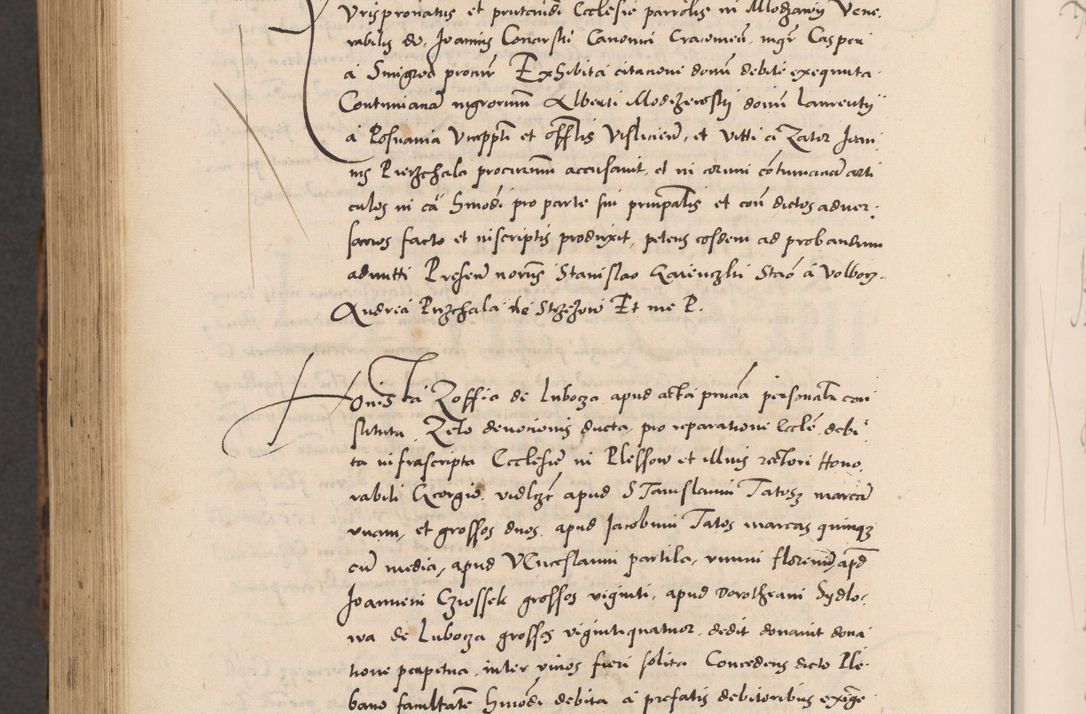 Jurispronatus et pretendi Ecclesie parrolis in Modzarow Vene,
rabilis do. Joannis Conarski Canonici Cracovien. mgr Casper
a Smigrod procur Exhibita citacione domi debite exequuta
Contumaciam mgrorum Alberti Modzewski domi Laurentij
a Posnania Viceppti et offtis Visliciens, et Vitti a Zator Joan
nis Pierzchala procuratorum accusavit, et in eorum contumaciam arti
culos in ca hmoi pro parte sui principalis et con dictos adver
sarios facto et inscriptis produxit, petens eosdem ad probandum
admitti Presen noriis Stanislao Karenczki Stao a Volborz
Andrea Pirzchala de Strzezow Et me P.
Honesta Zoffia de Luborza apud acta pnia personalr con
stituta Zelo devocionis ducta, pro reparatione Eccle debi
ta infrascripta Ecclesie in Plessow et illius rectori Hono,
rabili Georgio, videlzt apud Stanislaum Tatosz marcam
unam, et grossos duos, apud Jacobum Tatos marcas quinqz
cum media, apud Wenceslaum partila, unum florenum, apd
Joannem Czossek grossos viginti, apud Dorotheam Sydlo,
wa de Luborza grossos vigintiquatuor, dedit donavit dona
tione perpetua, inter vivos fieri solita Concedens dicto Ple
bano facultatem hmoi debita a prefatis debitoribus exige